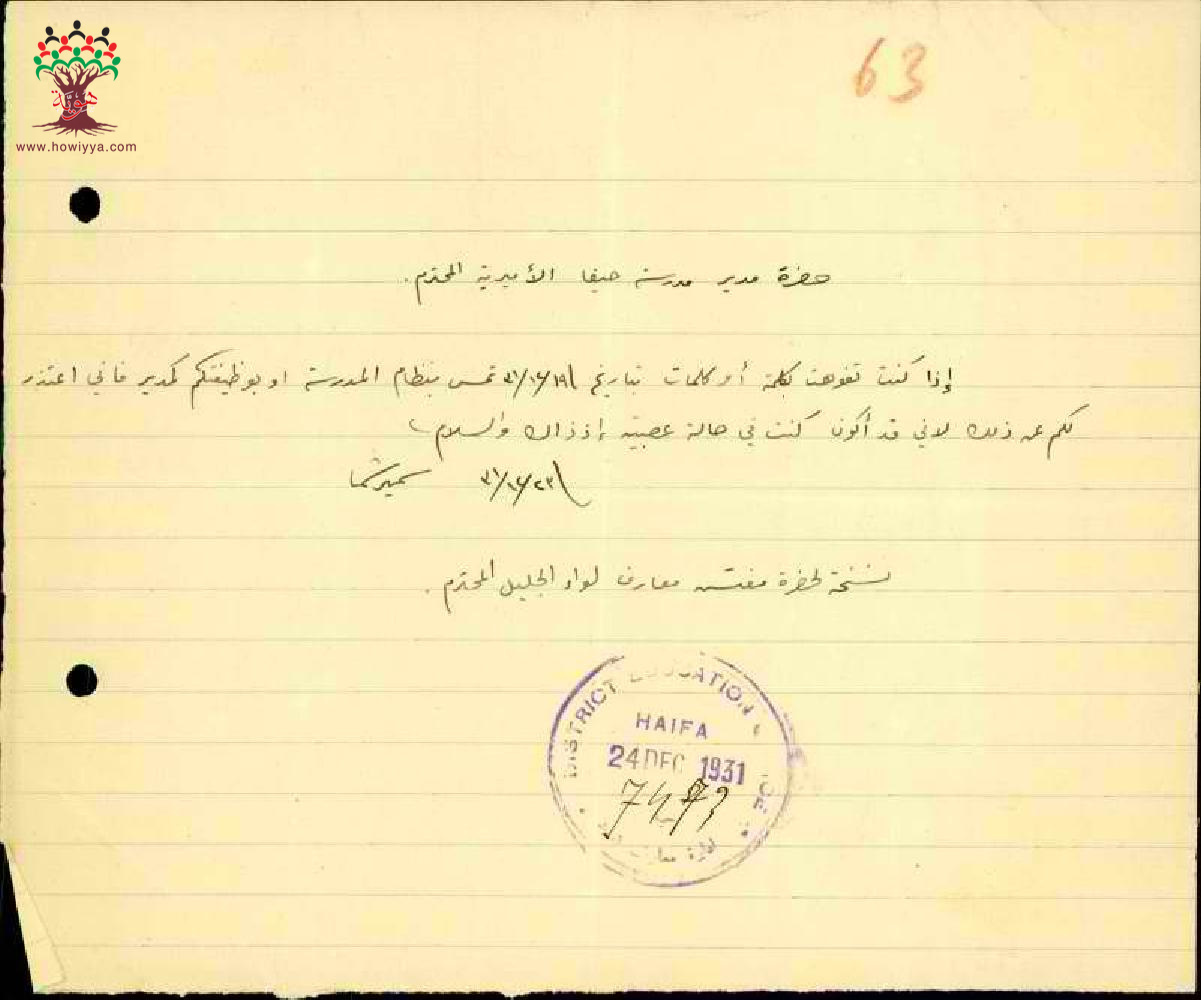 هوية
www.howiyya.com
63
حضرة مدير مدرسة حيفا الأميرية المحترم.
إذا كنت تفوهت بكلمة أو كلمات بتاريخ ١٩/١٢/٣١ تمس بنظام المدرسة او بوظيفتكم كمدير فاني اعتذر
لكم عن ذلك لاني قد أكون كنت في حالة عصبية إذ ذاك والسلام
٢٣/١٢/٣١ سمير شما
نسخة لحضرة مفتش معارف لواء الجليل المحترم.
DISTRICT EDUCATION
HAIFA
24 DEC 1931
ادارة معارف